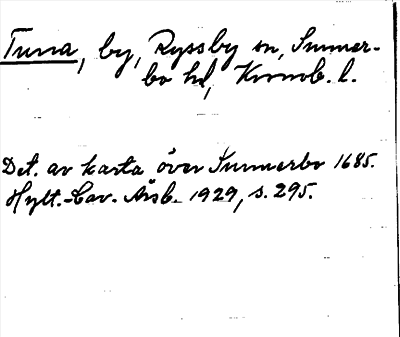 Tuna, by, Ryssby sn, Sunner-
bo hd, Kronob. l.
Det. av karta över Sunnerbo 1685.
Hylt.-Cav. Årsb. 1929, s. 295.